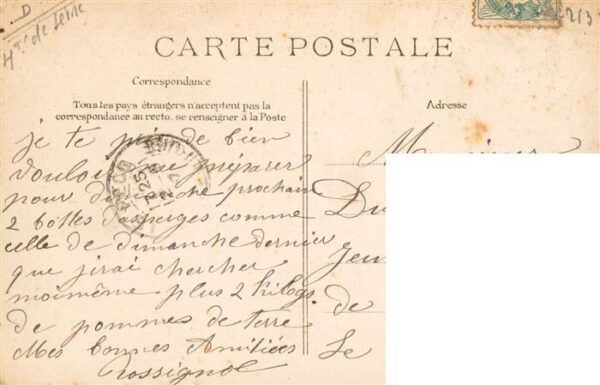 D
Hts de Seine
213
CARTE POSTALE
Correspondance
Tous les pays étrangers n'acceptent pas la
correspondance au recto. se renseigner à la Poste
Adresse
je te prie de bien
vouloir me préparer
pour dimanche prochain
2 bottes d'asperges comme
celle de dimanche dernier
que j'irai chercher
moi même plus 2 kilogs
de pommes de terre
Mes bonnes Amitiées
Rossignol
de
Le